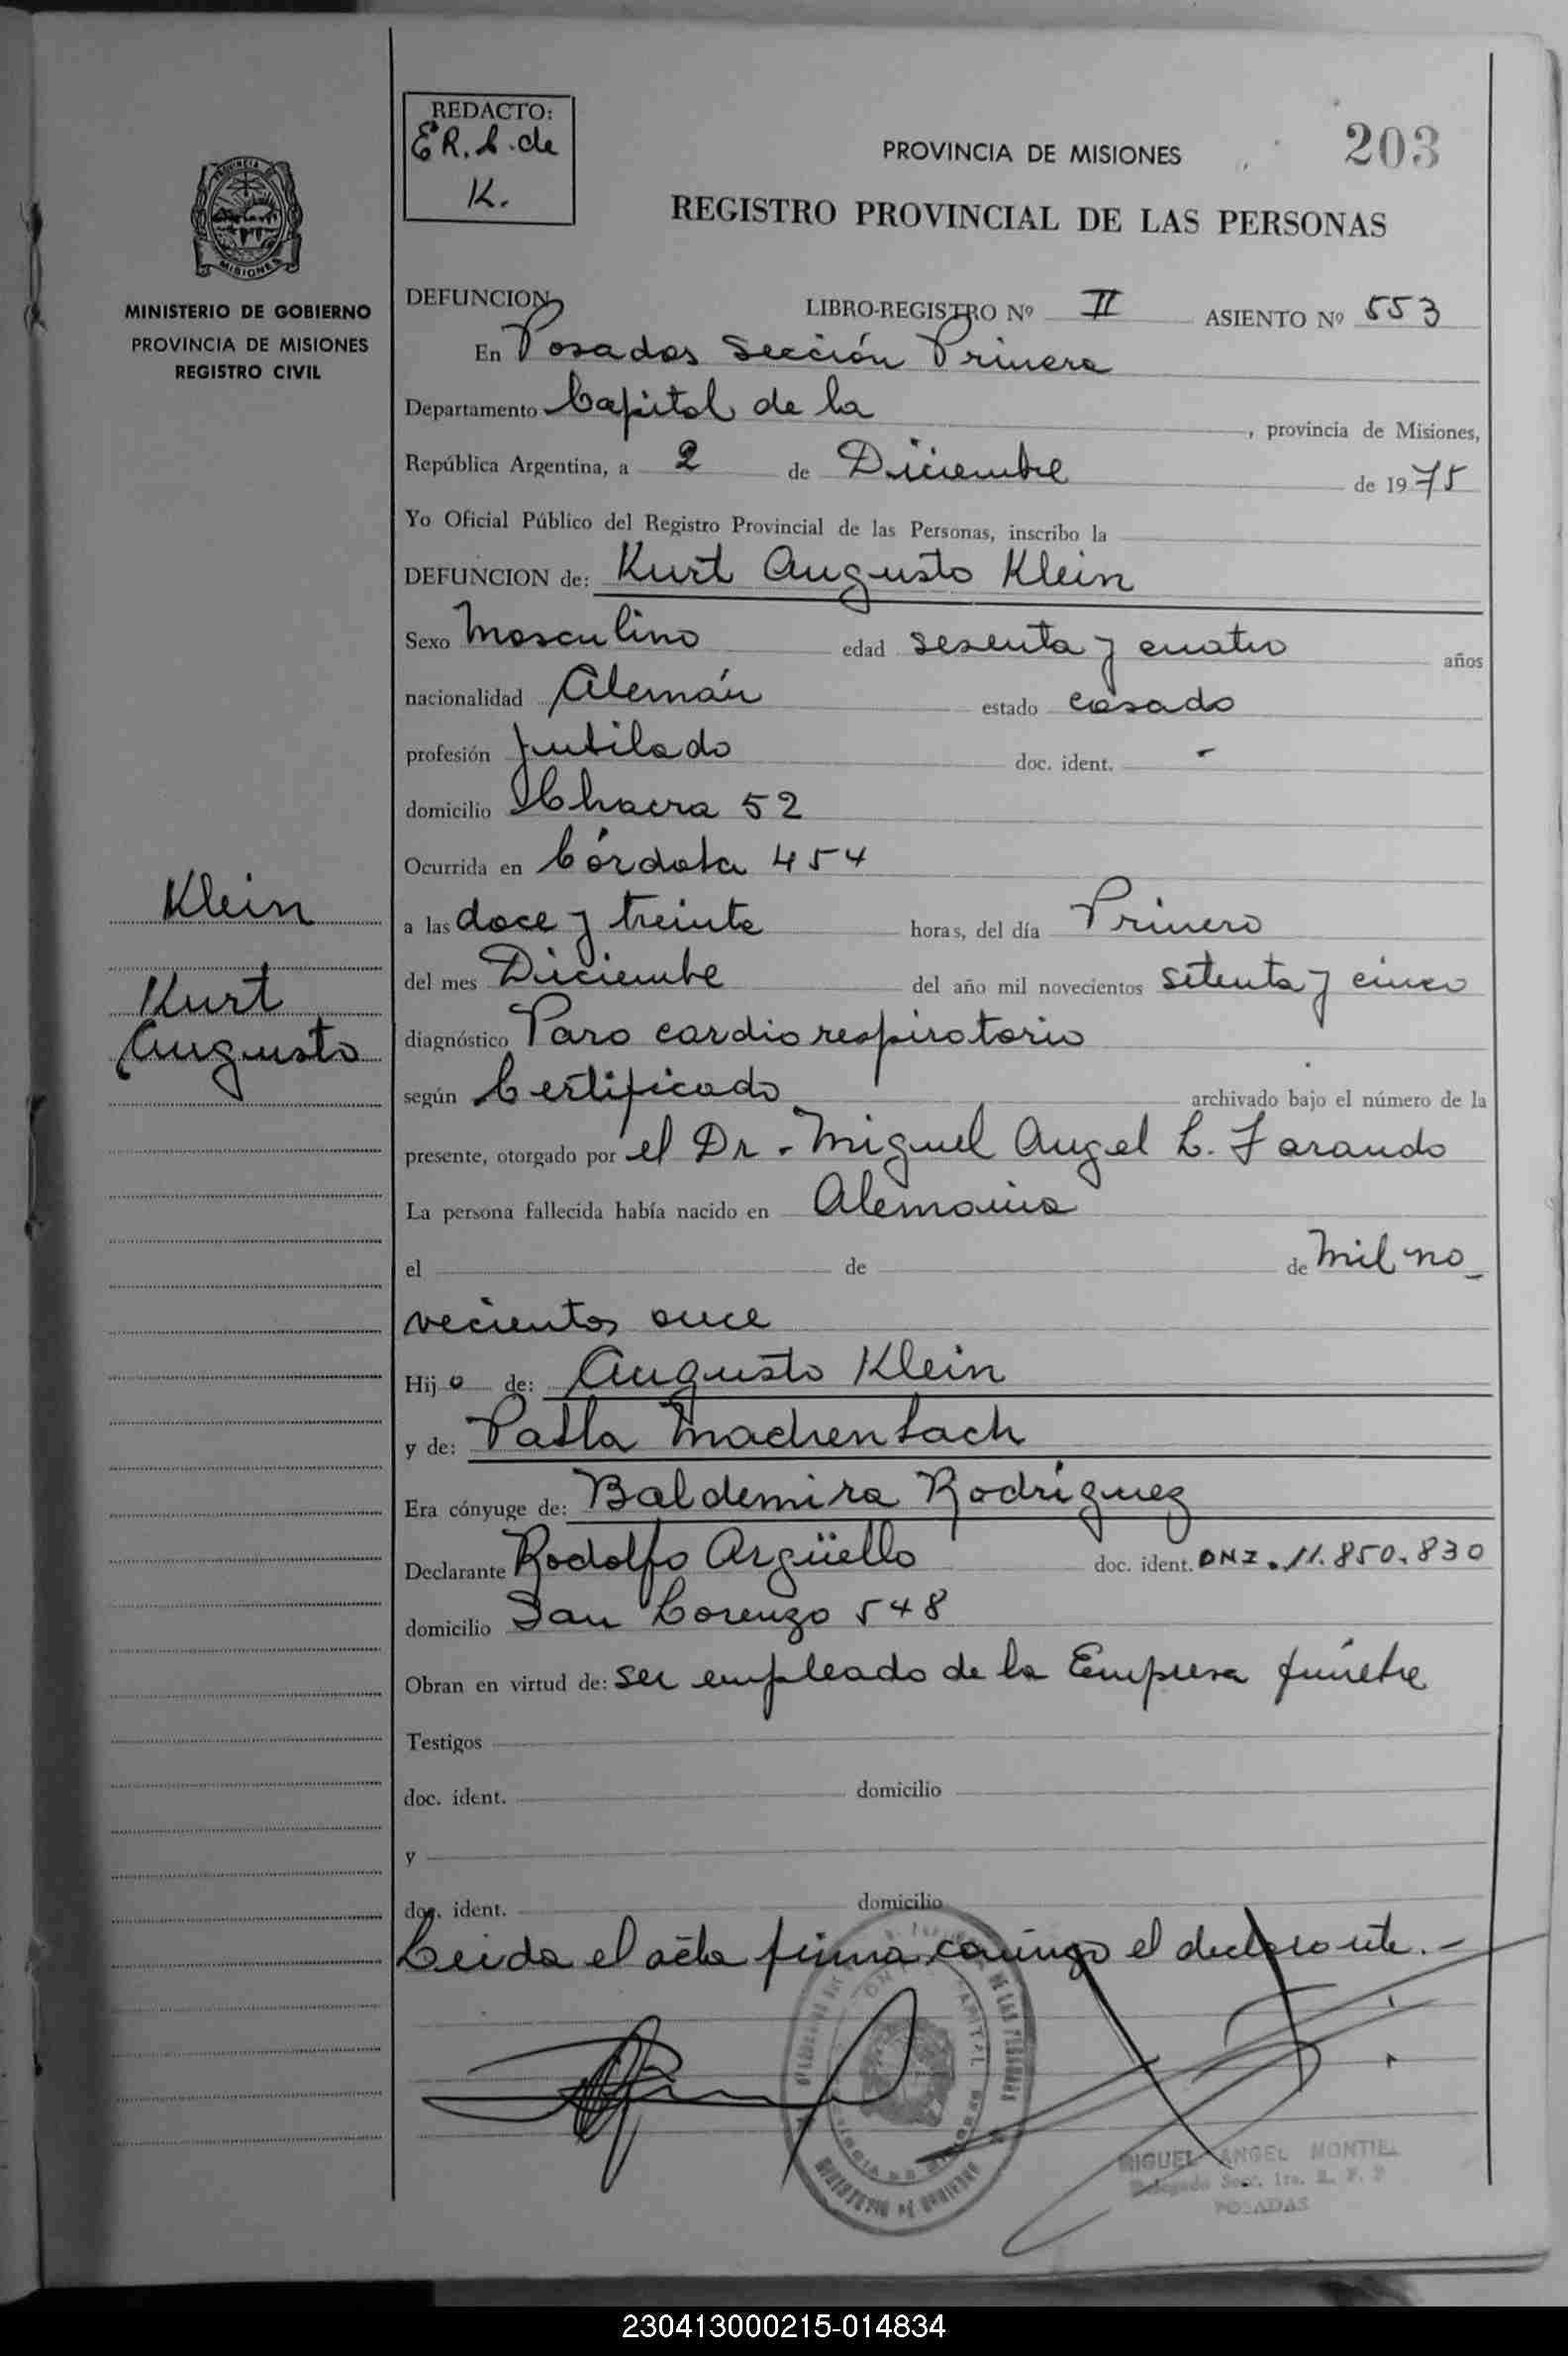 REDACTO:
E R. L. de
K.
PROVINCIA DE MISIONES
203
REGISTRO PROVINCIAL DE LAS PERSONAS
MISIONES
MINISTERIO DE GOBIERNO
PROVINCIA DE MISIONES
REGISTRO CIVIL
DEFUNCION
LIBRO-REGISTRO Nº II ASIENTO Nº 553
En Posadas Sección Primera
Departamento Capital de la , provincia de Misiones,
República Argentina, a 2 de Diciembre de 1975
Yo Oficial Público del Registro Provincial de las Personas, inscribo la
DEFUNCION de: Kurt Augusto Klein
Sexo Masculino edad sesenta y cuatro años
nacionalidad Alemán estado casado
profesión Jubilado doc. ident. -
domicilio Chacra 52
Ocurrida en Córdoba 454
Klein
a las doce y treinta horas, del día Primero
del mes Diciembre del año mil novecientos setenta y cinco
Kurt
Augusto
diagnóstico Paro cardiorespiratorio
según Certificado archivado bajo el número de la
presente, otorgado por el Dr. Miguel Angel L. Farando
La persona fallecida había nacido en Alemania
el de de mil no_
vecientos once
Hijo de: Augusto Klein
y de: Patla Machenbach
Era cónyuge de: Baldemira Rodríguez
Declarante Rodolfo Argüello doc. ident. DNI. 11.850.830
domicilio San Lorenzo 548
Obran en virtud de: ser empleado de la Empresa fúnebre
Testigos
doc. ident. domicilio
y
doc. ident. domicilio
Leida el acta firma conmigo el declarante.-
MINISTERIO DE GOBIERNO
MIGUEL ANGEL MONTIEL
Delegado Secc. 1ra. R. P. P
POSADAS
230413000215-014834